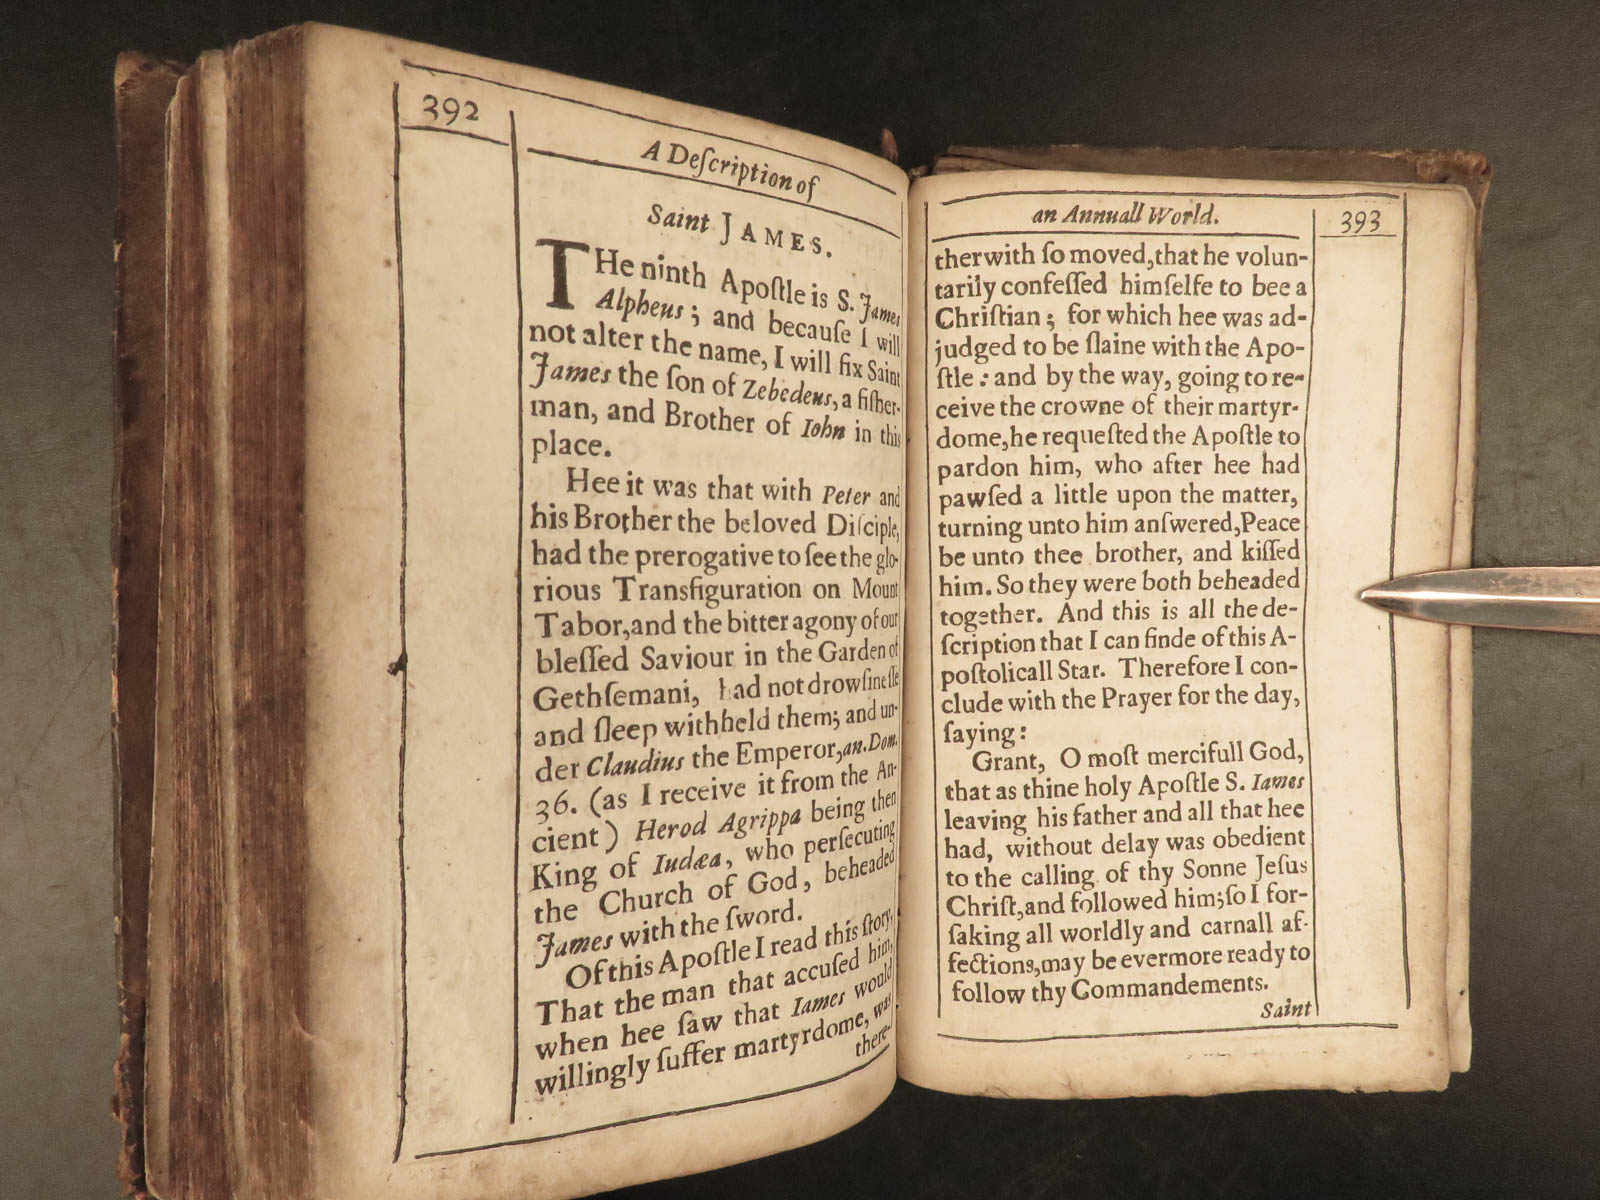 392
A Deſcription of
Saint JAMES.
THe ninth Apoſtle is S. James
Alpheus; and becauſe I will
not alter the name, I will fix Saint
James the ſon of Zebedeus, a fiſher-
man, and Brother of Iohn in this
place.
Hee it was that with Peter and
his Brother the beloved Diſciple,
had the prerogative to ſee the glo-
rious Transfiguration on Mount
Tabor, and the bitter agony of our
bleſſed Saviour in the Garden of
Gethſemani, had not drowſineſſe
and ſleep withheld them; and un-
der Claudius the Emperor, an. Dom.
36. (as I receive it from the An-
cient) Herod Agrippa being then
King of Iudæa, who perſecuting
the Church of God, beheaded
James with the ſword.
Of this Apoſtle I read this ſtory,
That the man that accuſed him,
when hee ſaw that Iames would
willingly ſuffer martyrdome, was
there-
an Annuall World.
393
therwith ſo moved, that he volun-
tarily confeſſed himſelfe to bee a
Chriſtian; for which hee was ad-
judged to be ſlaine with the Apo-
ſtle: and by the way, going to re-
ceive the crowne of their martyr-
dome, he requeſted the Apoſtle to
pardon him, who after hee had
pawſed a little upon the matter,
turning unto him anſwered, Peace
be unto thee brother, and kiſſed
him. So they were both beheaded
together. And this is all the de-
ſcription that I can finde of this A-
poſtolicall Star. Therefore I con-
clude with the Prayer for the day,
ſaying:
Grant, O moſt mercifull God,
that as thine holy Apoſtle S. Iames
leaving his father and all that hee
had, without delay was obedient
to the calling of thy Sonne Jeſus
Chriſt, and followed him; ſo I for-
ſaking all worldly and carnall af-
fections, may be evermore ready to
follow thy Commandements.
Saint